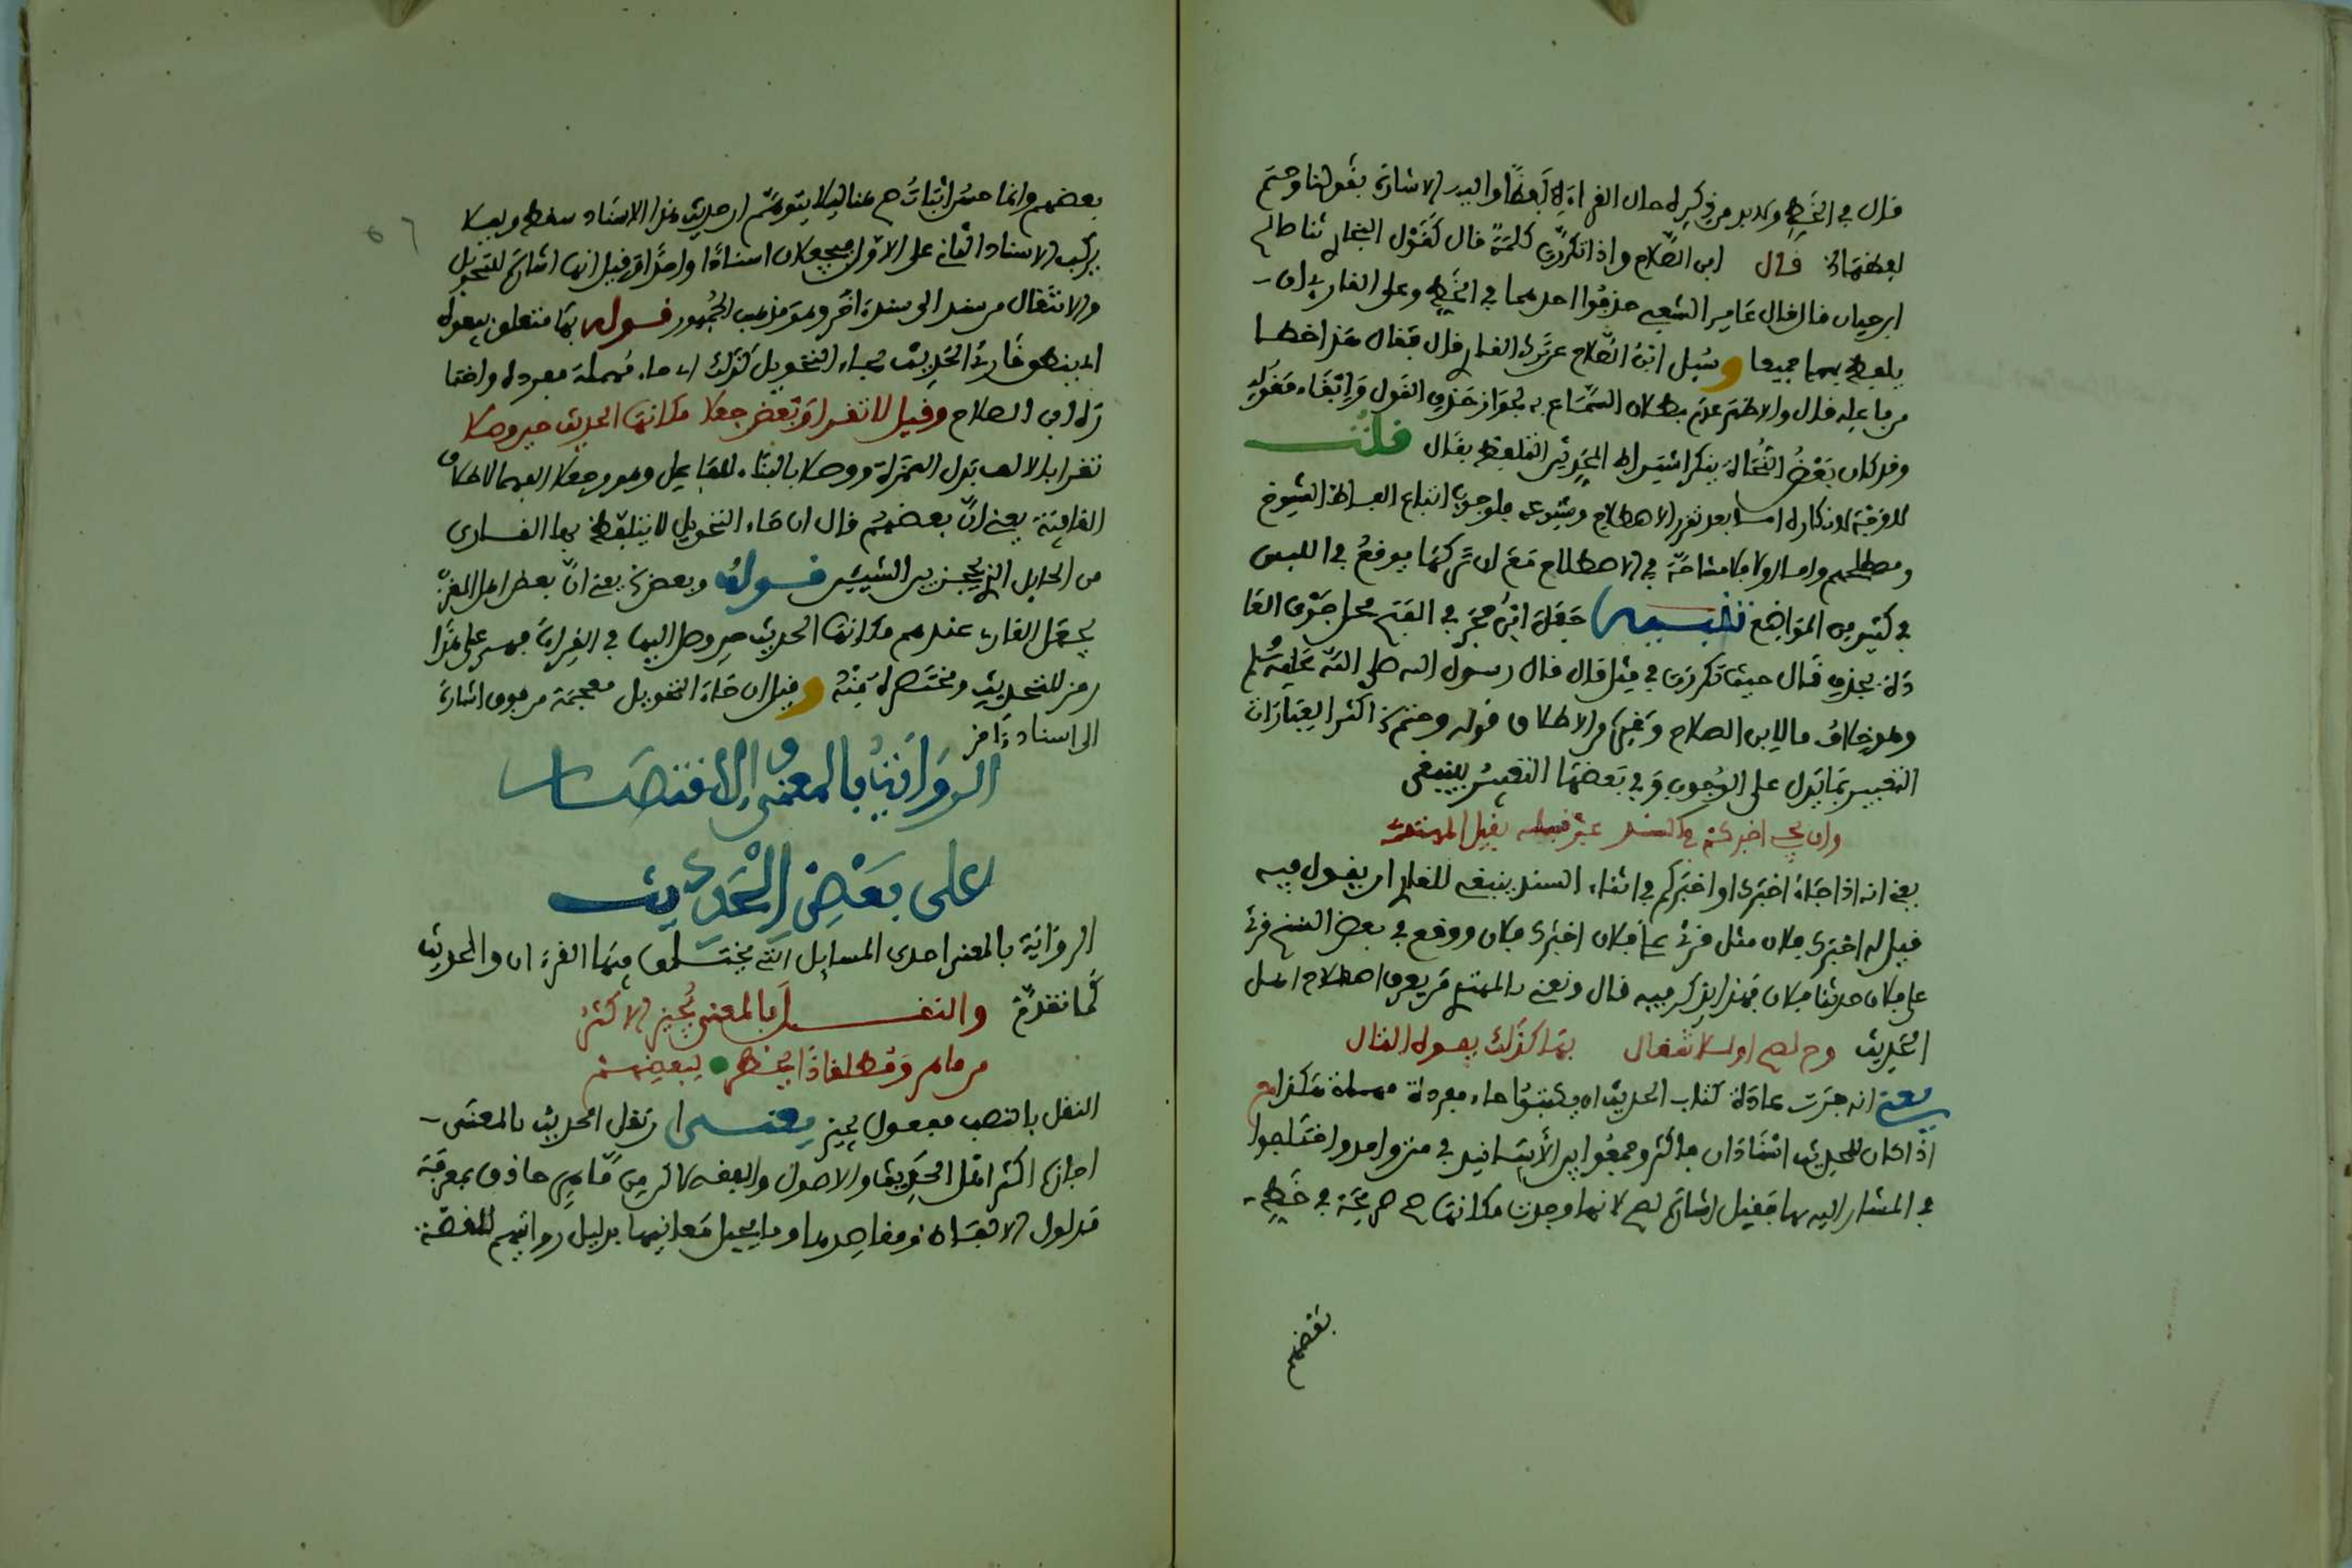 قال في الخط ولا بد من ذكره حال القراءة لفظا واليه الاشارة بقولنا وحتم
لفظهما قال ابن الصلاح واذا تكررت كلمة قال كقول البخاري ثنا صالح
ابن حيان قال قال عامر الشعبي حذفوا احدهما في الخط وعلى القارئ ان
يلفظ بهما جميعا وسئل ابن الصلاح عن ترك القارئ قال فقال هذا خطا
من فاعله قال والاظهر عدم بطلان السماع به لجواز حذف القول وابقاء مقوله
وقد كان بعض النحاة ينكر اشتراط المحدثين التلفظ بقال قلت
لا وجه لانكاره اما بعد تقرر الاصطلاح وشيوعه فلوجوب اتباع الفاظ الشيوخ
ومصطلحهم واما اولا فلا مشاحة في الاصطلاح مع ان تركها يوقع في اللبس
في كثير من المواضع تنبيه جعل ابن حجر في الفتح محل جري العا
دة بحذف قال حيث تكررت في مثل قال قال رسول الله صلى الله عليه وسلم
وهو خلاف ما لابن الصلاح وغيره من الاطلاق قوله وحتم في اكثر العبارات
التعبير بما يدل على الوجوب وفي بعضها التعبير بينبغي
وان يجي اخبركم في السند قيل له يقيل المهتدي
يعني انه اذا جاء اخبرك او اخبركم في اثناء السند ينبغي للقارئ ان يقول فيه
قيل له اخبرك فلان مثل قرئ على فلان اخبرك فلان ووقع في بعض النسخ قرئ
على فلان حدثنا فلان فهذا يذكر فيه قال ونعني بالمهتدي من يعرف اصطلاح اهل
الحديث وح لصح او لانتقال بها كذلك يفوه التال
يعني انه جرت عادة كتاب الحديث ان يكتبوا حاء مفردة مهملة هكذا ح
اذا كان للحديث اسنادان فاكثر وجمعوا بين الأسانيد في متن واحد واختلفوا
في المشار اليه بها فقيل اشارة لصح لانها وجدت مكانها صح صريحة في خط
بعضهم
بعضهم وانما حسن اثبات صح هنا ليلا يتوهم ان حديث هذا الاسناد سقط وليلا
يركب الاسناد الثاني على الاول فيجعلان اسنادا واحدا وقيل انها اشارة للتحويل
والانتقال من سند الى سند اخر وهو مذهب الجمهور قوله بها متعلق بيفوه
اي ينطق قارئ الحديث بحاء التحويل كذلك اي حاء مهملة مفردة واختا
ره ابن الصلاح وقيل لا تقرا وبعض جعلا مكانها الحديث حين وصلا
تقرا بالالف بدل الهمزة ووصلا بالبناء للفاعل وهو وجعلا الفهما لاطلاق
القافية يعني ان بعضهم قال ان حاء التحويل لا يتلفظ بها القارئ
من الحايل الذي يحجز بين الشيئين قوله وبعض يعني ان بعض اهل المغرب
يجعل القارئ عندهم مكانها الحديث حين وصل اليها في القراءة فهي على هذا
رمز للتحديث ومختصرة منه وقيل ان خاء التحويل معجمة من فوق اشارة
الى اسناد اخر
الرواية بالمعنى والاقتصار
على بعض الحديث
الرواية بالمعنى احدى المسايل التي يختلف فيها القرءان والحديث
كما تقدم والنقل بالمعنى يجيز الاكثر
من ماهر وقط لفاذا يحظر لبعضهم
النقل بالنصب مفعول يجيز يعني ان نقل الحديث بالمعنى
اجازه اكثر اهل الحديث والاصول والفقه لاكن من ماهر حاذق بمعرفة
مدلول الالفاظ ومقاصدها وما يحيل معانيها بدليل روايتهم للقصة